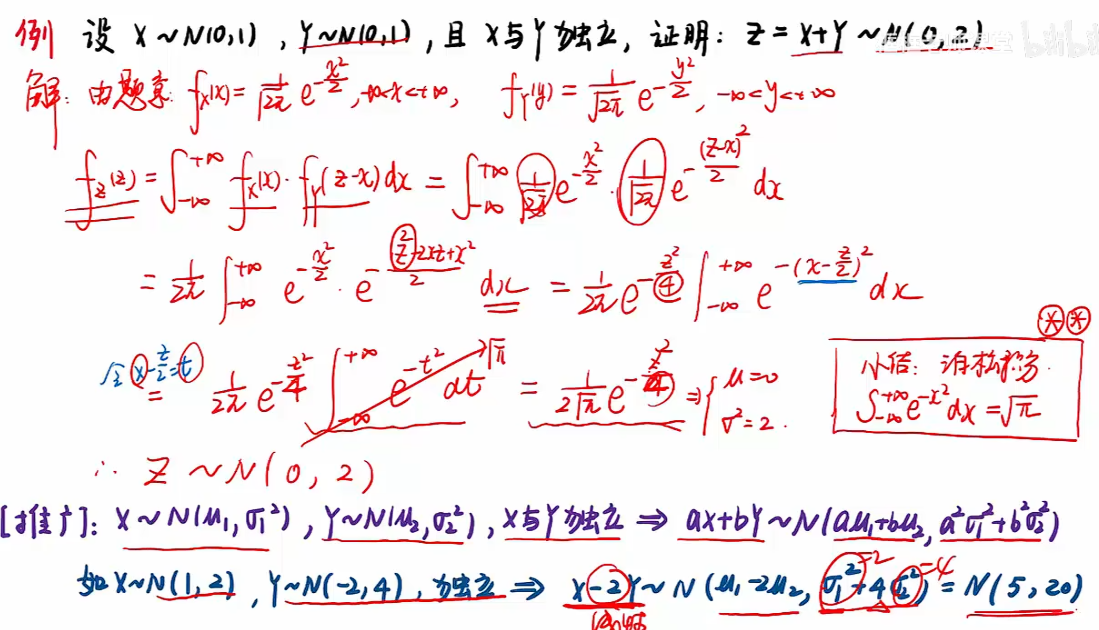 例 设 X~N(0,1), Y~N(0,1), 且 X与Y独立, 证明: Z=X+Y~N(0,2).
解: 由题意: f_X(x)=\frac{1}{\sqrt{2π}}e^{-\frac{x^2}{2}}, -∞<x<+∞, f_Y(y)=\frac{1}{\sqrt{2π}}e^{-\frac{y^2}{2}}, -∞<y<+∞
f_Z(z)=∫_{-∞}^{+∞} f_X(x)·f_Y(z-x)dx = ∫_{-∞}^{+∞} \frac{1}{\sqrt{2π}}e^{-\frac{x^2}{2}}·\frac{1}{\sqrt{2π}}e^{-\frac{(z-x)^2}{2}}dx
= \frac{1}{2π}∫_{-∞}^{+∞} e^{-\frac{x^2}{2}}·e^{-\frac{z^2-2xz+x^2}{2}}dx = \frac{1}{2π}e^{-\frac{z^2}{4}}∫_{-∞}^{+∞} e^{-(x-\frac{z}{2})^2}dx
令 x-\frac{z}{2}=t
= \frac{1}{2π}e^{-\frac{z^2}{4}}∫_{-∞}^{+∞} e^{-t^2}dt √π = \frac{1}{2\sqrt{π}}e^{-\frac{z^2}{4}} ⇒ { μ=0
σ^2=2.
小结: 泊松积分.
∫_{-∞}^{+∞} e^{-x^2}dx=√π
∴ Z~N(0,2)
[推广]: X~N(μ_1,σ_1^2), Y~N(μ_2,σ_2^2), X与Y独立 ⇒ aX+bY~N(aμ_1+bμ_2, a^2σ_1^2+b^2σ_2^2)
如 X~N(1,2), Y~N(-2,4), 独立 ⇒ X-2Y~N(μ_1-2μ_2, σ_1^2+4σ_2^2)=N(5,20)
=2
=4